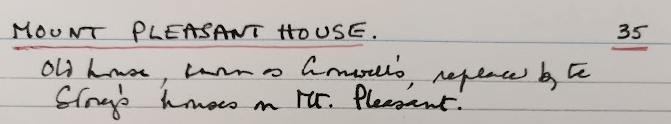 MOUNT PLEASANT HOUSE. 35
Old house, known as Cromwell's, replaced by te
Storey's houses on Mt. Pleasant.